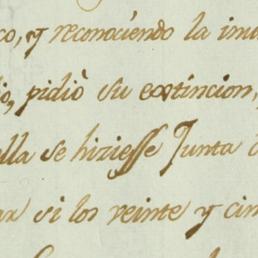 co, y reconociendo la inu
io, pidiò su extincion,
lla se hiziesse Junta
ar si los veinte y cin